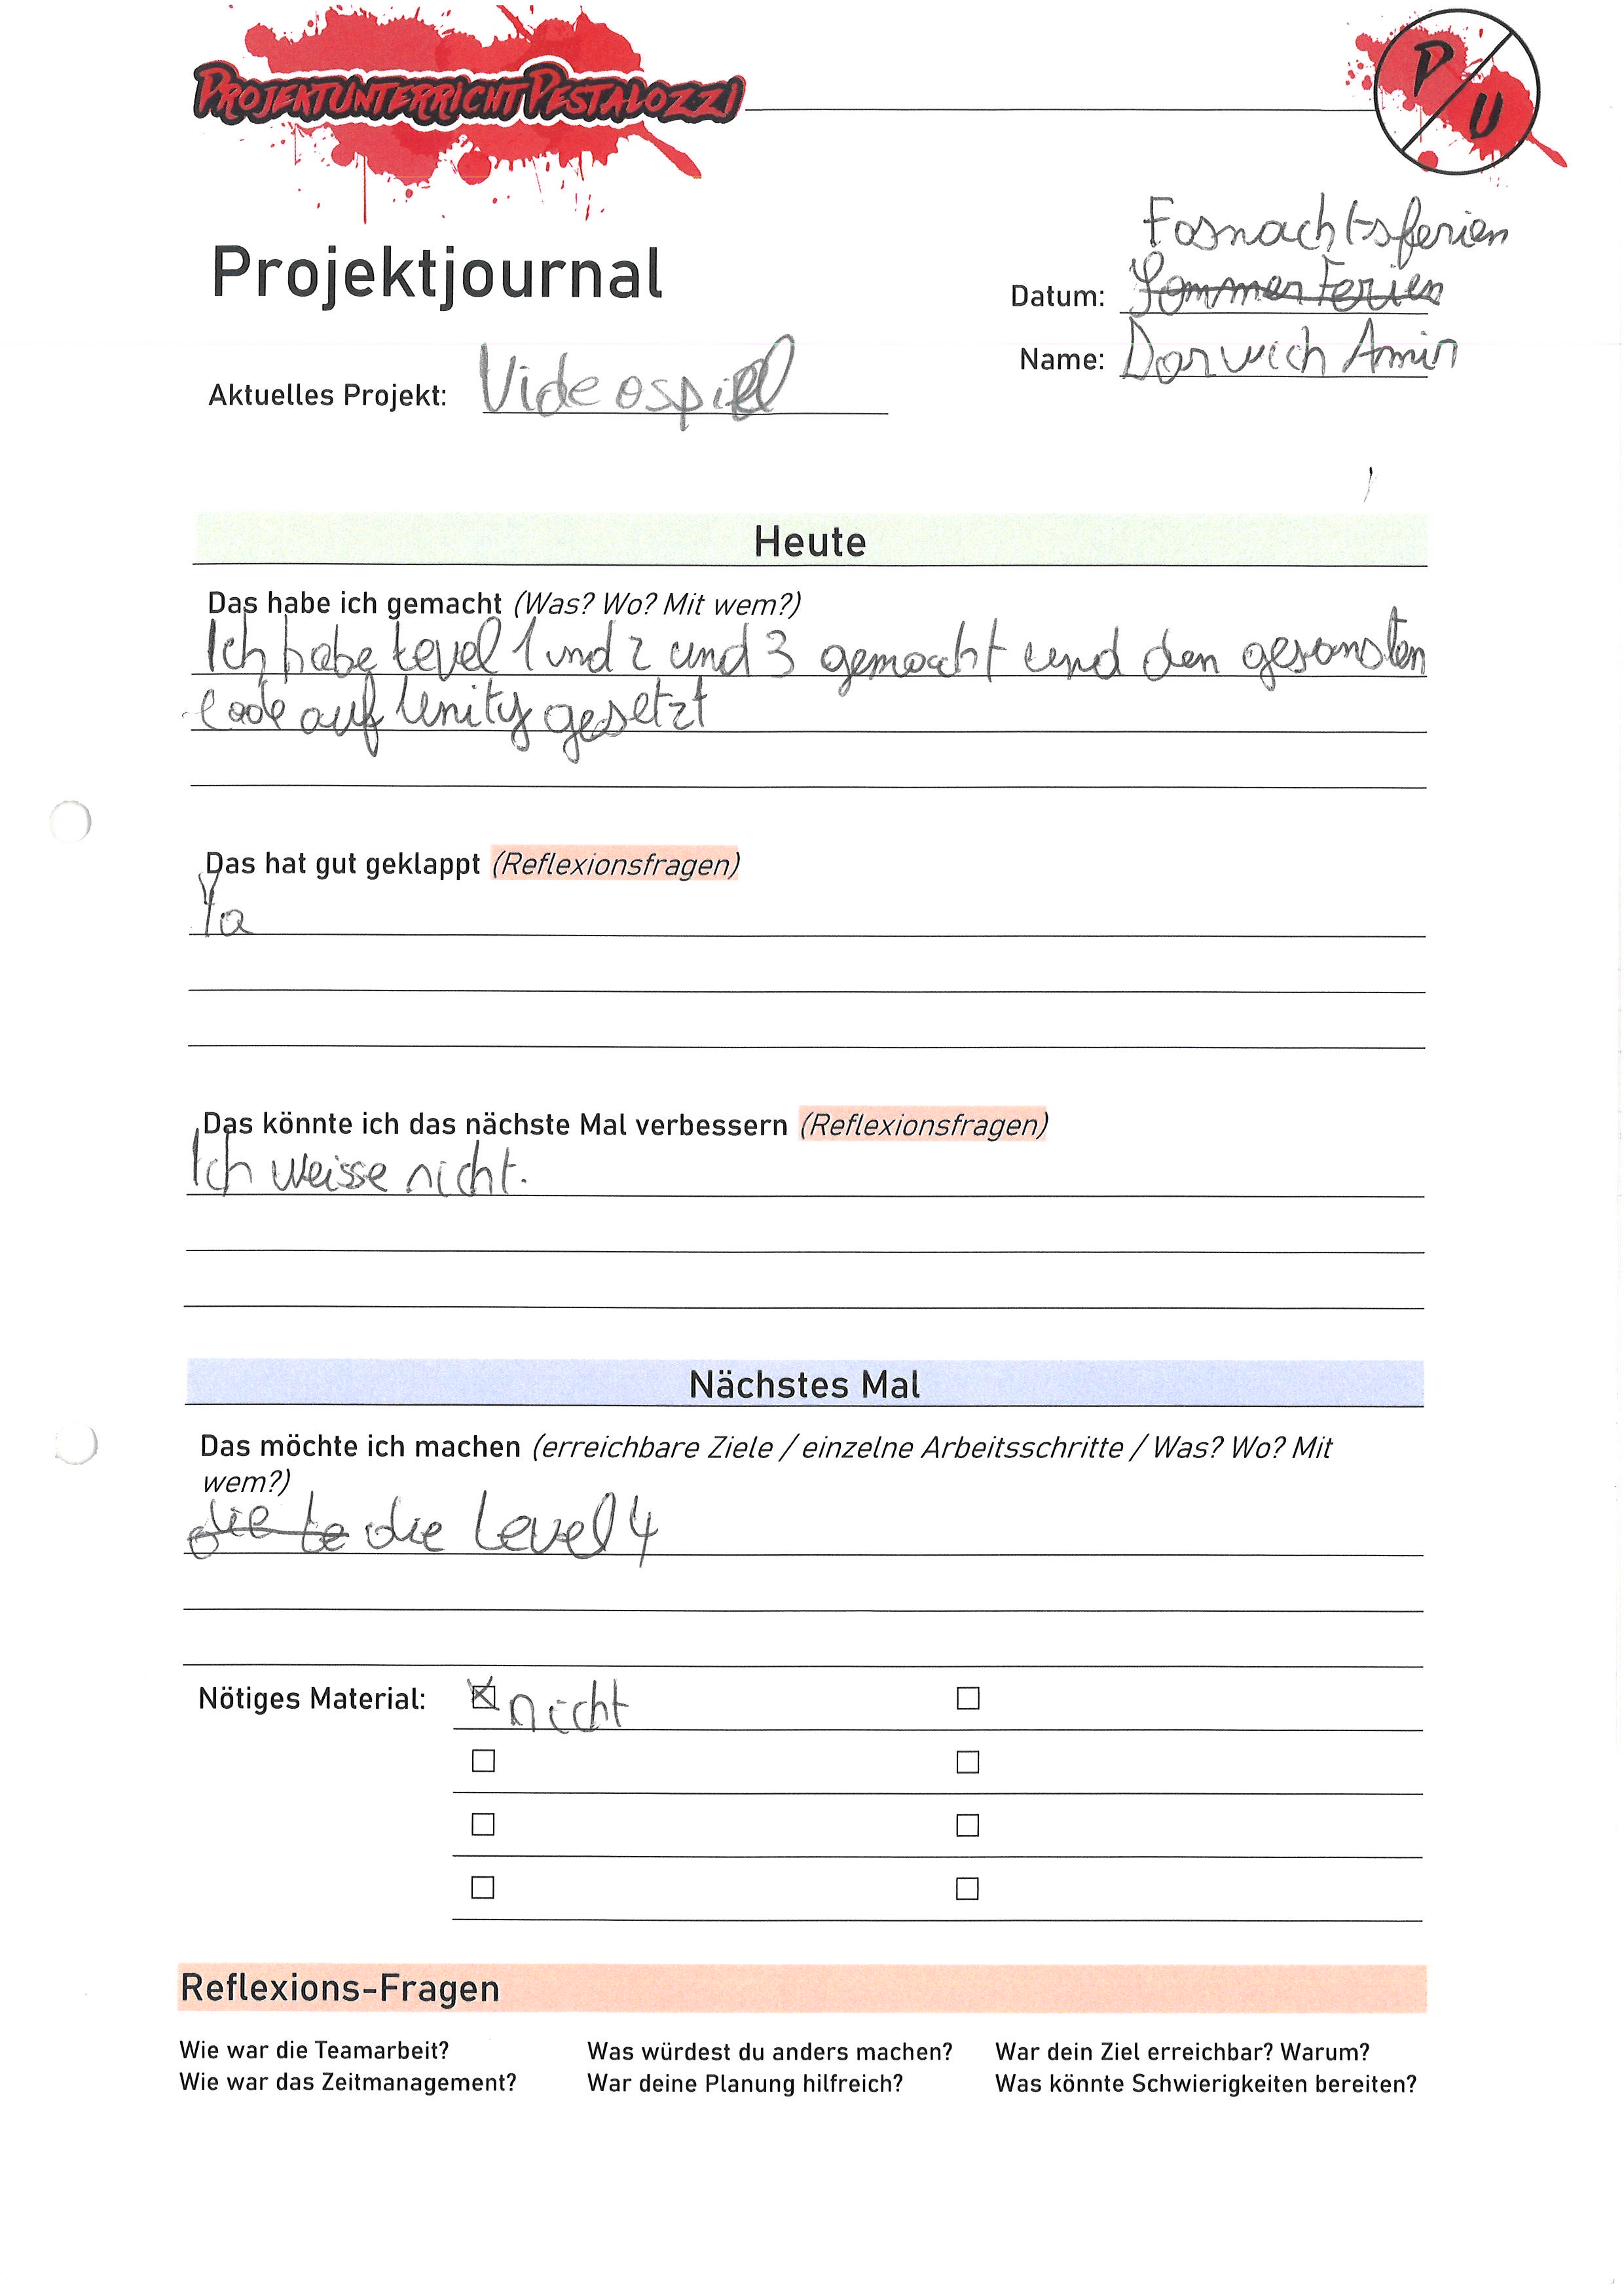 PROJEKTUNTERRICHT PESTALOZZI
P U
Projektjournal
Fasnachtsferien
Datum: Sommer Ferien
Name: Darwich Amin
Aktuelles Projekt: Videospiel
Heute
Das habe ich gemacht (Was? Wo? Mit wem?)
Ich habe Level 1 und 2 und 3 gemacht und den gesamsten
Code auf Unity gesetzt
Das hat gut geklappt (Reflexionsfragen)
Ya
Das könnte ich das nächste Mal verbessern (Reflexionsfragen)
Ich weisse nicht.
Nächstes Mal
Das möchte ich machen (erreichbare Ziele / einzelne Arbeitsschritte / Was? Wo? Mit
wem?)
die le die Level 4
Nötiges Material: nicht
Reflexions-Fragen
Wie war die Teamarbeit? Was würdest du anders machen? War dein Ziel erreichbar? Warum?
Wie war das Zeitmanagement? War deine Planung hilfreich? Was könnte Schwierigkeiten bereiten?